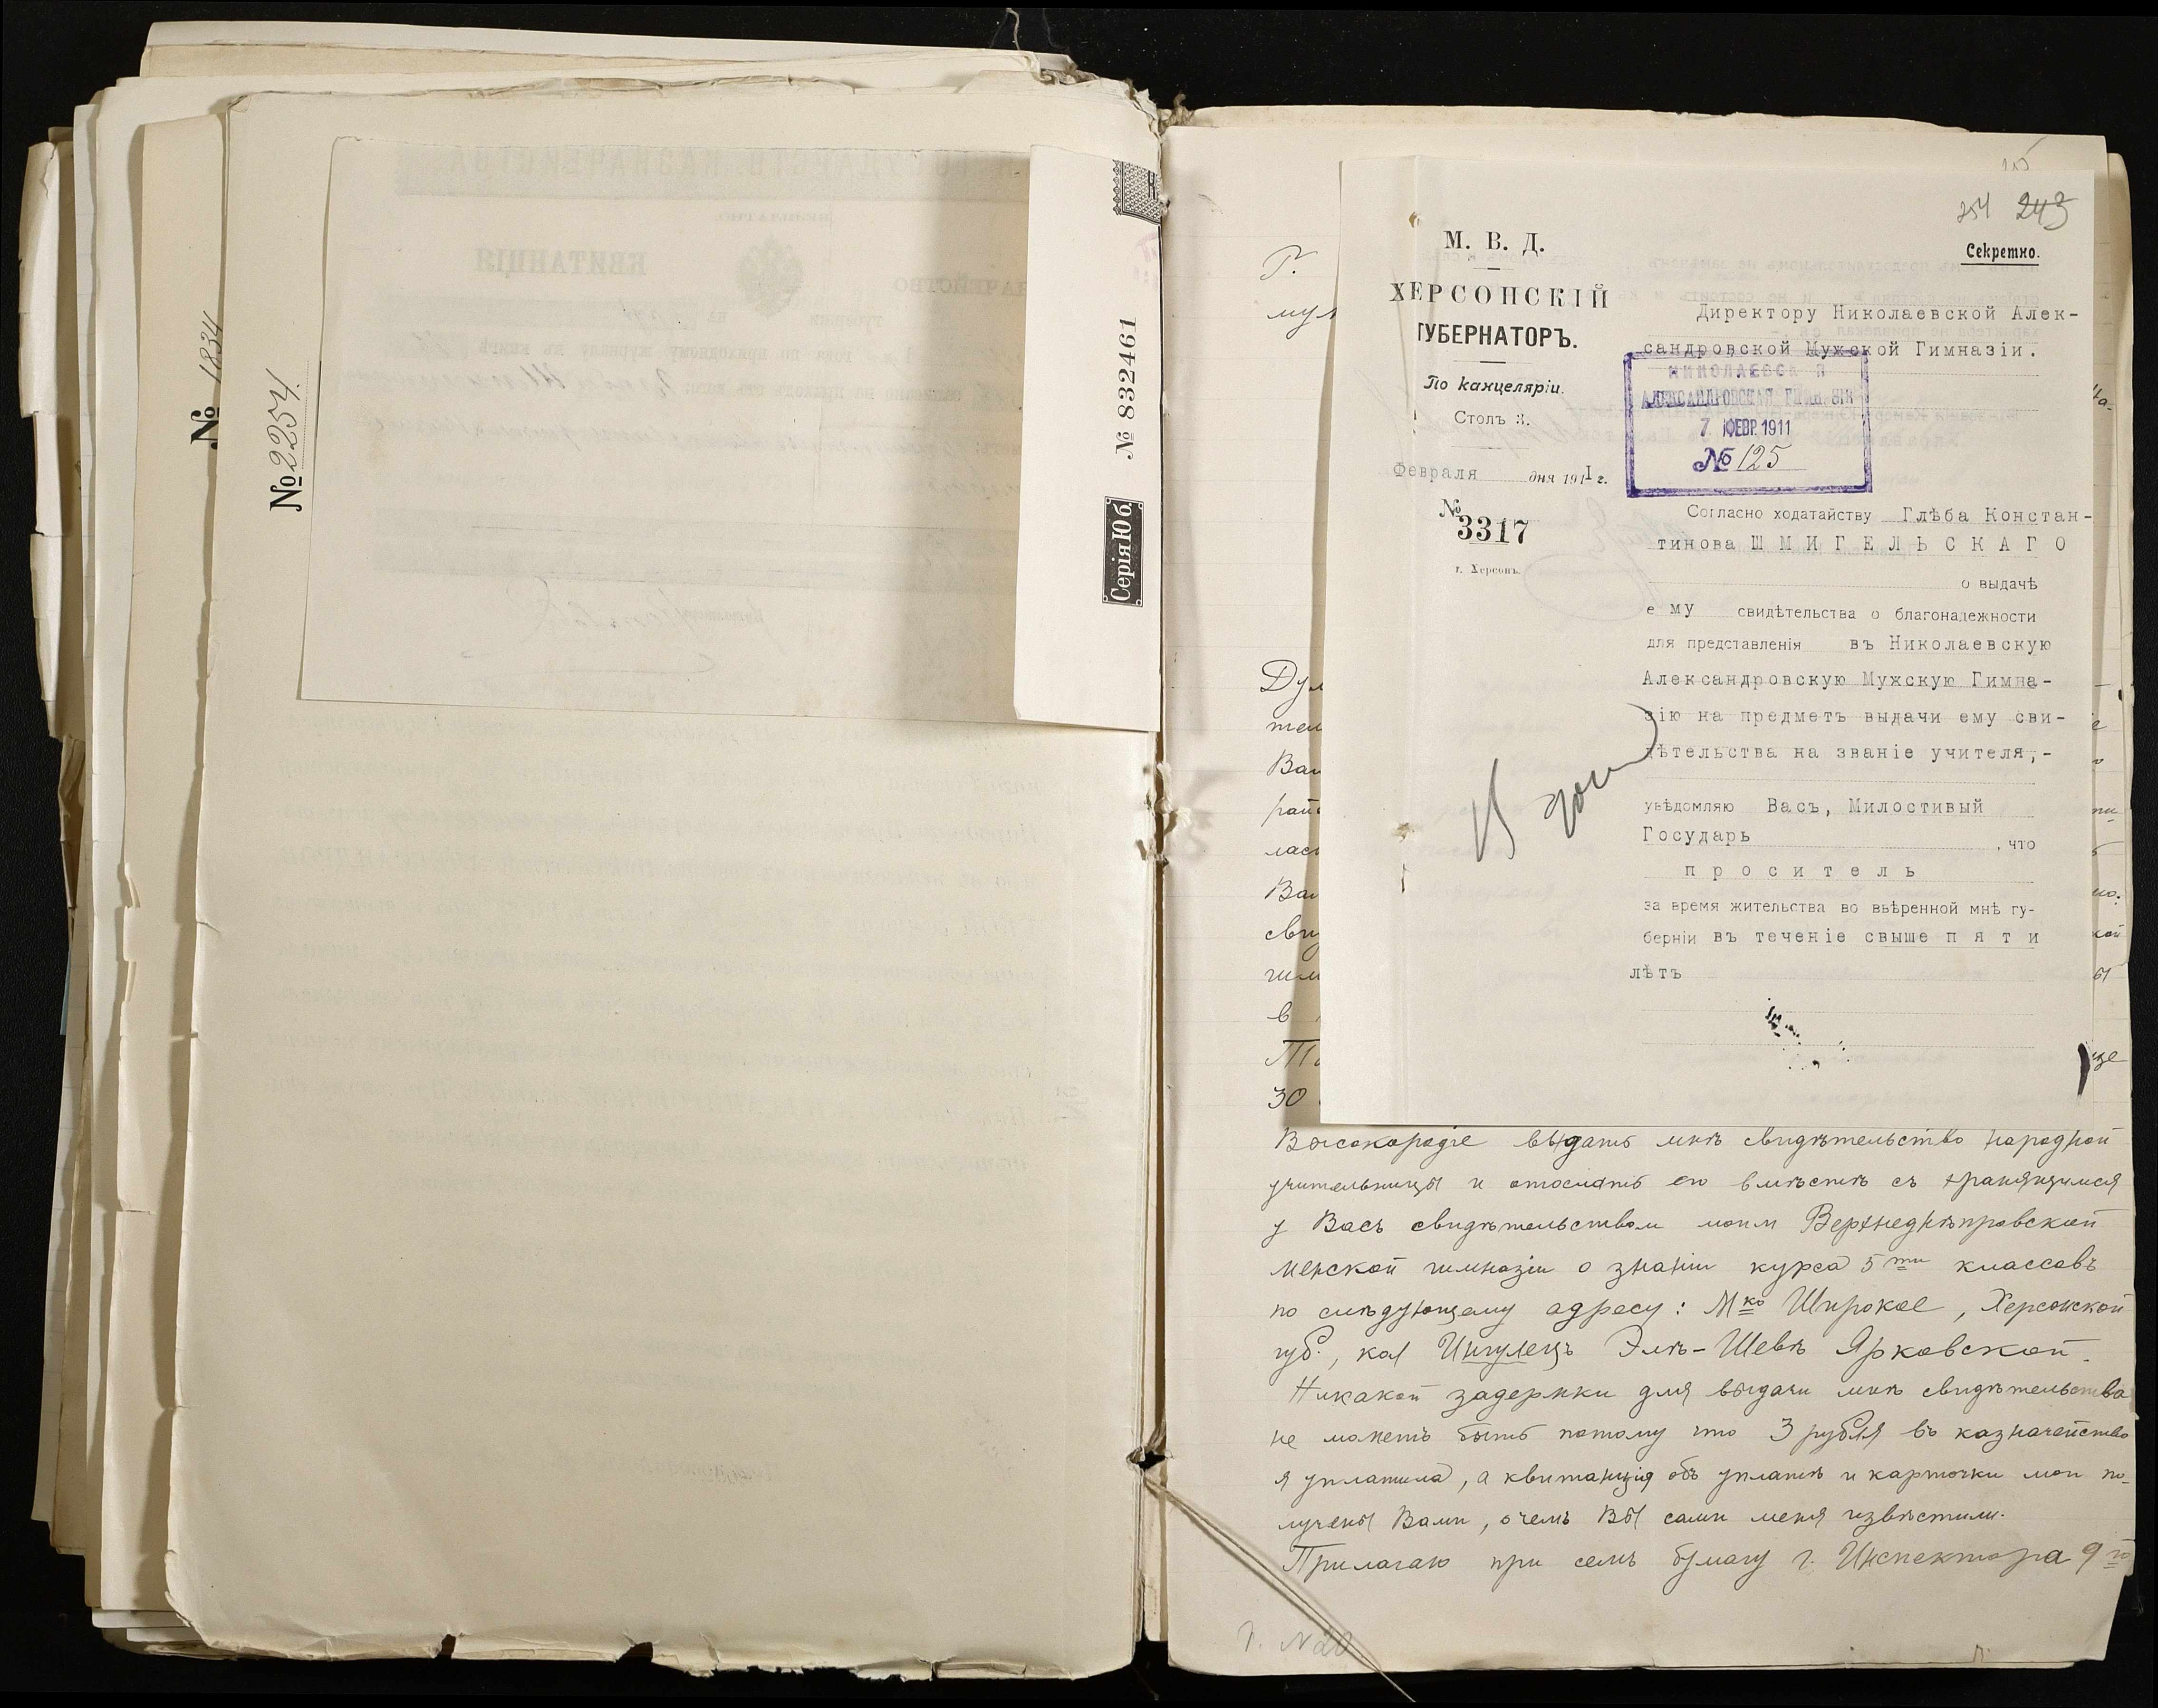 № 1834
№ 2254.
№ 832461
Серія Юб
254 243
М. В. Д.
ХЕРСОНСКІЙ
ГУБЕРНАТОРЪ.
По канцеляріи.
Столъ 3.
Февраля дня 1911 г.
№ 3317
г. Херсонъ.
Секретно.
Директору Николаевской Алек-
сандровской Мужской Гимназіи.
НИКОЛАЕВСКАЯ
АЛЕКСАНДРОВСКАЯ ГИМНАЗІЯ
7 ФЕВР. 1911
№ 125
Согласно ходатайству Глѣба Констан-
тинова ШМИГЕЛЬСКАГО
о выдачѣ
ему свидѣтельства о благонадежности
для представленія въ Николаевскую
Александровскую Мужскую Гимна-
зію на предметъ выдачи ему сви-
дѣтельства на званіе учителя,-
увѣдомляю Васъ, Милостивый
Государь , что
проситель
за время жительства во ввѣренной мнѣ гу-
берніи въ теченіе свыше пяти
лѣтъ
Г.
мул
Дул
тел
Ваш
рай
лас
Ваш
сви
гим
в
30
Высокородіе выдать мнѣ свидѣтельство народной
учительницы и отослать его вмѣстѣ съ хранящимся
у Васъ свидѣтельством моим Верхнеднѣпровской
женской гимназіи о знаніи курса 5ти классовъ
по слѣдующему адресу: Мко Широкое, Херсонской
губ., кол Ингулецъ Элѣ-Шевѣ Ярковской.
Никакой задержки для выдачи мнѣ свидѣтельства
не можетъ быть потому что 3 рубля въ казначейство
я уплатила, а квитанція объ уплатѣ и карточки мои по-
лучены Вами, о чемъ Вы сами меня извѣстили.
Прилагаю при семъ бумагу г. Инспектора 9го